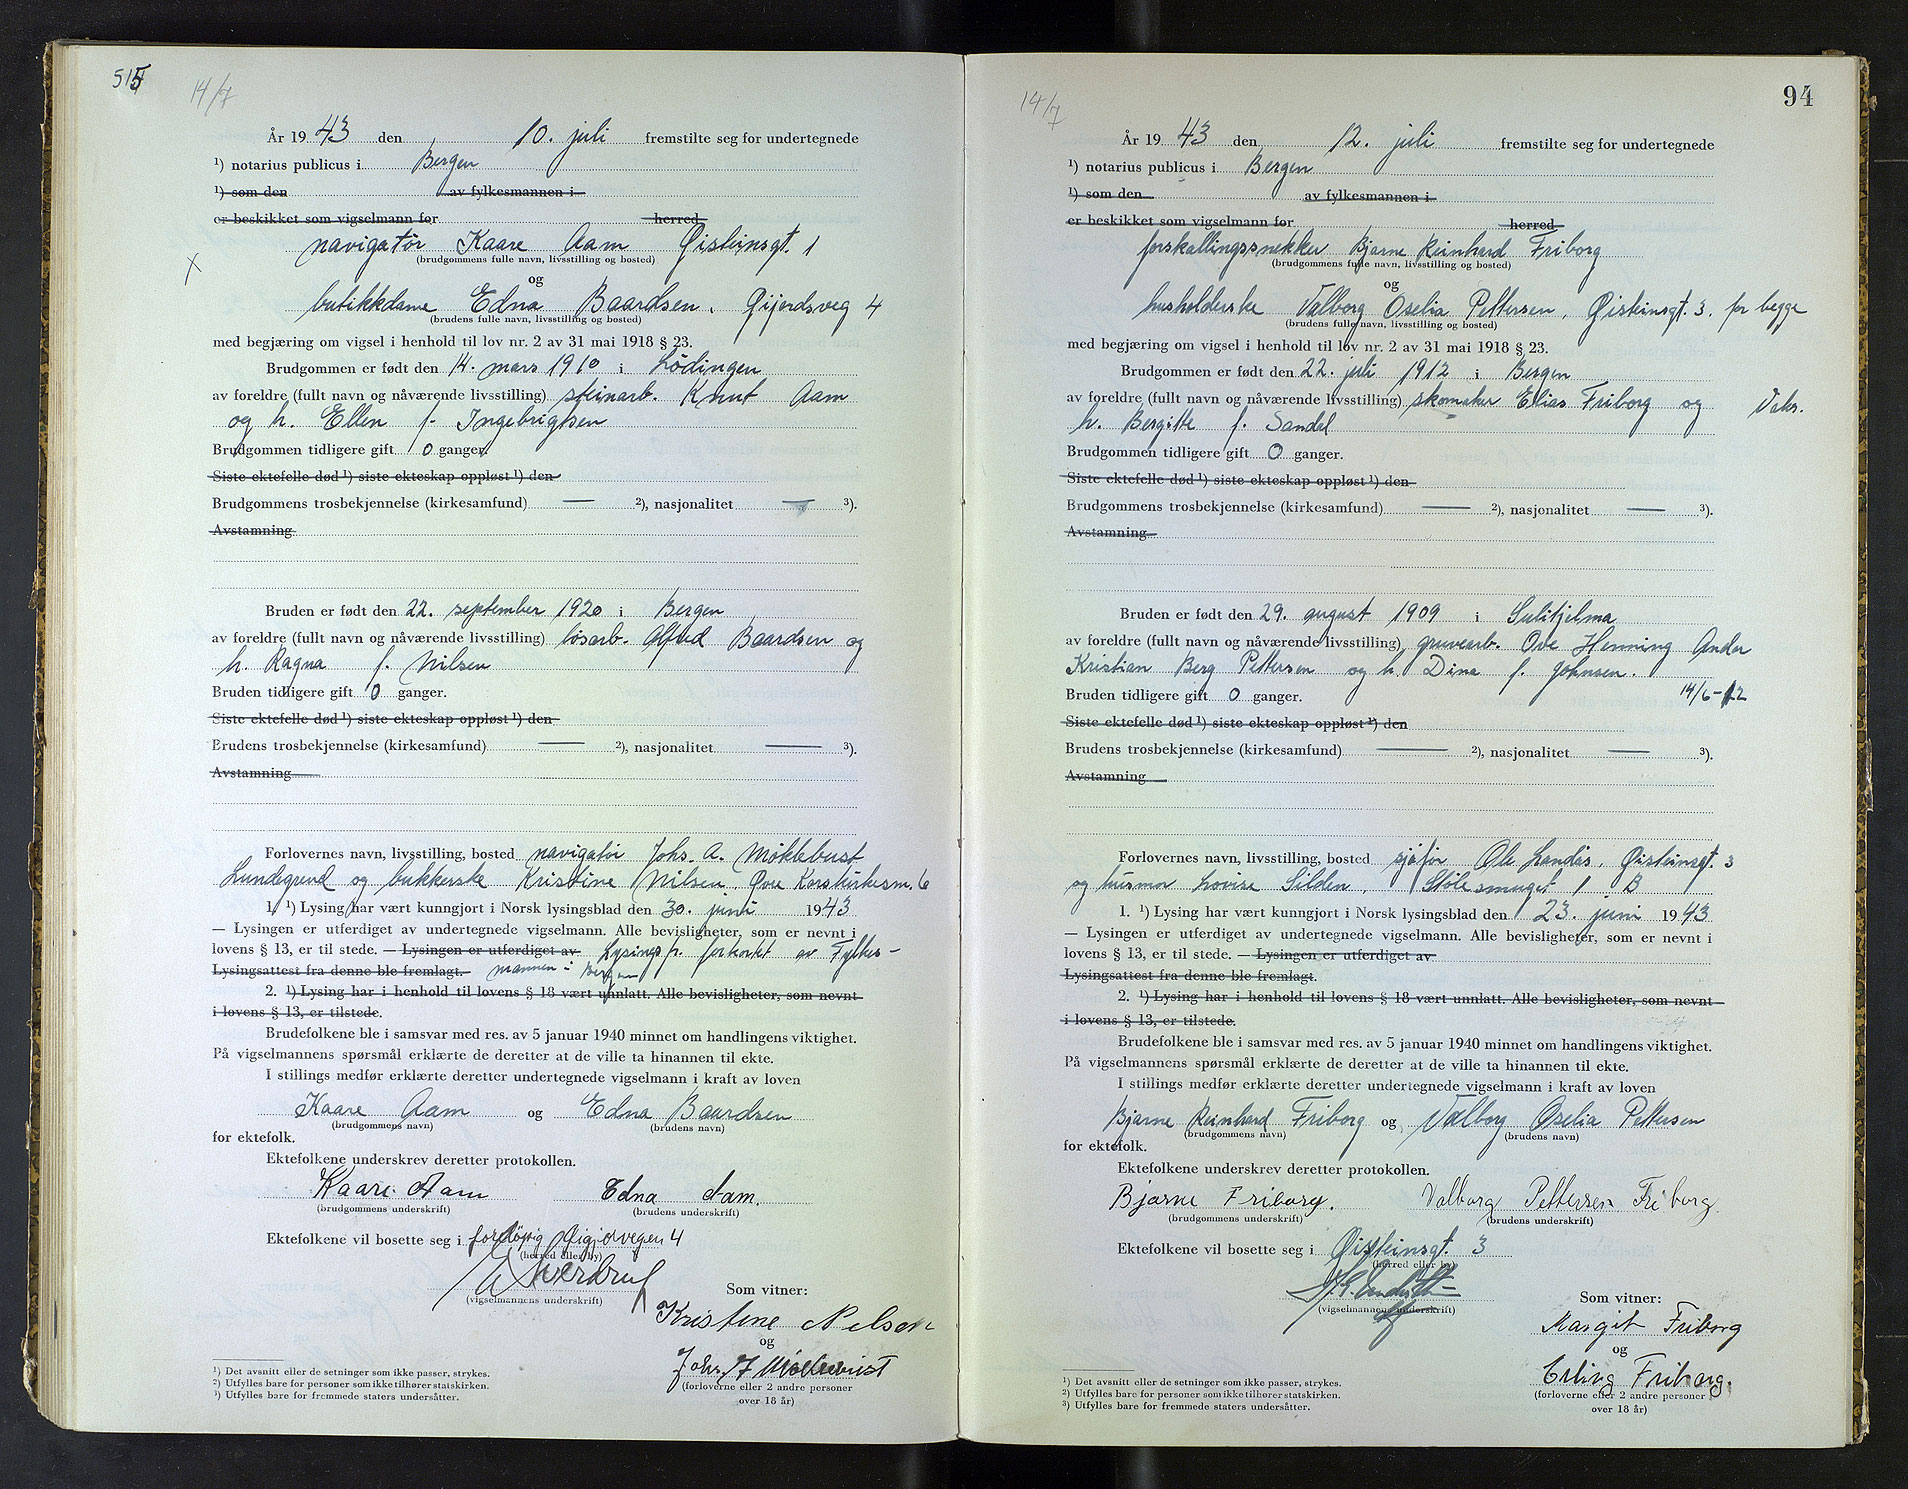 515
14/7
År 1943 den 10. juli fremstilte seg for undertegnede
¹) notarius publicus i Bergen
¹) som den av fylkesmannen i
er beskikket som vigselmann for herred
navigatør Kaare Aam Øisteinsgt. 1
(brudgommens fulle navn, livsstilling og bosted)
x
og
butikkdame Edna Baardsen, Gijerdsveg 4
(brudens fulle navn, livsstilling og bosted)
med begjæring om vigsel i henhold til lov nr. 2 av 31 mai 1918 § 23.
Brudgommen er født den 14. mars 1910 i Lödingen
av foreldre (fullt navn og nåværende livsstilling) steinarb. Knut Aam
og h. Ellen f. Ingebrigtsen
Brudgommen tidligere gift 0 ganger.
Siste ektefelle død ¹) siste ekteskap oppløst ¹) den
Brudgommens trosbekjennelse (kirkesamfund) — ²), nasjonalitet — ³).
Avstamning
Bruden er født den 22. september 1920 i Bergen
av foreldre (fullt navn og nåværende livsstilling) løsarb. Alfred Baardsen og
h. Ragna f. Nilsen
Bruden tidligere gift 0 ganger.
Siste ektefelle død ¹) siste ekteskap oppløst ¹) den
Brudens trosbekjennelse (kirkesamfund) — ²), nasjonalitet — ³).
Avstamning
Forlovernes navn, livsstilling, bosted navigatør Johs. A. Möklebust
Lundegrend og butikkerske Kristine Nilsen, Øvre Korskirkesm. 6
1. ¹) Lysing har vært kunngjort i Norsk lysingsblad den 30. juni 1943
— Lysingen er utferdiget av undertegnede vigselmann. Alle bevisligheter, som er nevnt i
lovens § 13, er til stede. — Lysingen er utferdiget av Lysingsfr. forkortet av Fylkes-
Lysingsattest fra denne ble fremlagt. mannen i Bergen
2. ¹) Lysing har i henhold til lovens § 18 vært unnlatt. Alle bevisligheter, som nevnt
i lovens § 13, er tilstede.
Brudefolkene ble i samsvar med res. av 5 januar 1940 minnet om handlingens viktighet.
På vigselmannens spørsmål erklærte de deretter at de ville ta hinannen til ekte.
I stillings medfør erklærte deretter undertegnede vigselmann i kraft av loven
Kaare Aam og Edna Baardsen
(brudgommens navn) (brudens navn)
for ektefolk.
Ektefolkene underskrev deretter protokollen.
Kaare Aam Edna Aam.
(brudgommens underskrift) (brudens underskrift)
Ektefolkene vil bosette seg i foreløpig Gijerdvegen 4
(herred eller by)
(vigselmannens underskrift)
Som vitner:
Kristine Nilsen
og
Johs A Möklebust
(forloverne eller 2 andre personer
over 18 år)
¹) Det avsnitt eller de setninger som ikke passer, strykes.
²) Utfylles bare for personer som ikke tilhører statskirken.
³) Utfylles bare for fremmede staters undersåtter.
14/7
94
År 1943 den 12. juli fremstilte seg for undertegnede
¹) notarius publicus i Bergen
¹) som den av fylkesmannen i
er beskikket som vigselmann for herred
forskallingssnekker Bjarne Reinhard Friborg
(brudgommens fulle navn, livsstilling og bosted)
og
husholderske Valborg Oselia Pettersen, Øisteinsgt. 3. for begge
(brudens fulle navn, livsstilling og bosted)
med begjæring om vigsel i henhold til lov nr. 2 av 31 mai 1918 § 23.
Brudgommen er født den 22. juli 1912 i Bergen
av foreldre (fullt navn og nåværende livsstilling) skomaker Elias Friborg og
h. Bergitte f. Sandal
Brudgommen tidligere gift 0 ganger.
Siste ektefelle død ¹) siste ekteskap oppløst ¹) den
Brudgommens trosbekjennelse (kirkesamfund) — ²), nasjonalitet — ³).
Avstamning
Bruden er født den 29. august 1909 i Sulitjelma
av foreldre (fullt navn og nåværende livsstilling) gruvearb. Ove Henning Ander
Kristian Berg Pettersen og h. Dina f. Johnsen.
Bruden tidligere gift 0 ganger. 14/6-12
Siste ektefelle død ¹) siste ekteskap oppløst ¹) den
Brudens trosbekjennelse (kirkesamfund) — ²), nasjonalitet — ³).
Avstamning
Forlovernes navn, livsstilling, bosted sjåfør Ole Landås, Øisteinsgt. 3
og husmor Lovise Silden, Stölesmuget 1 B
1. ¹) Lysing har vært kunngjort i Norsk lysingsblad den 23. juni 1943
— Lysingen er utferdiget av undertegnede vigselmann. Alle bevisligheter, som er nevnt i
lovens § 13, er til stede. — Lysingen er utferdiget av
Lysingsattest fra denne ble fremlagt.
2. ¹) Lysing har i henhold til lovens § 18 vært unnlatt. Alle bevisligheter, som nevnt
i lovens § 13, er tilstede.
Brudefolkene ble i samsvar med res. av 5 januar 1940 minnet om handlingens viktighet.
På vigselmannens spørsmål erklærte de deretter at de ville ta hinannen til ekte.
I stillings medfør erklærte deretter undertegnede vigselmann i kraft av loven
Bjarne Reinhard Friborg og Valborg Oselia Pettersen
(brudgommens navn) (brudens navn)
for ektefolk.
Ektefolkene underskrev deretter protokollen.
Bjarne Friborg. Valborg Pettersen Friborg.
(brudgommens underskrift) (brudens underskrift)
Ektefolkene vil bosette seg i Øisteinsgt. 3
(herred eller by)
(vigselmannens underskrift)
Som vitner:
Margit Friborg
og
Erling Friborg.
(forloverne eller 2 andre personer
over 18 år)
¹) Det avsnitt eller de setninger som ikke passer, strykes.
²) Utfylles bare for personer som ikke tilhører statskirken.
³) Utfylles bare for fremmede staters undersåtter.